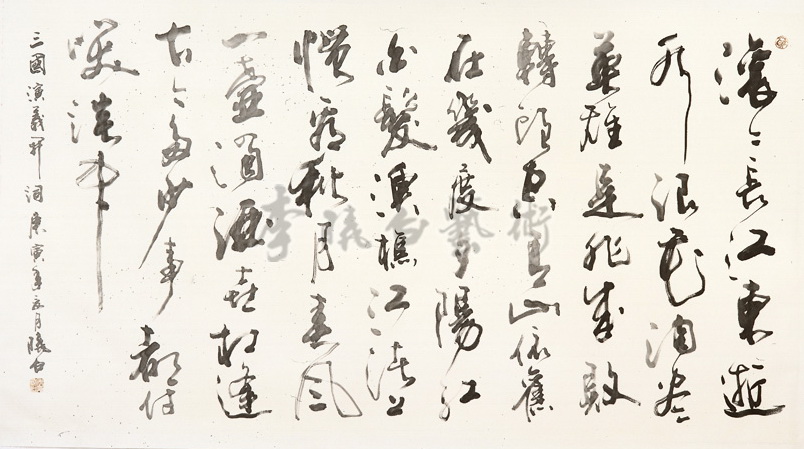 滚〻長江東逝
水浪花淘尽
英雄是非成敗
轉頭空青山依舊
在幾度夕陽紅
白髮漁樵江渚上
慣看秋月春風
一壺濁酒喜相逢
古今多少事都付
笑談中
三國演義开詞庚寅年月白
李白藝術